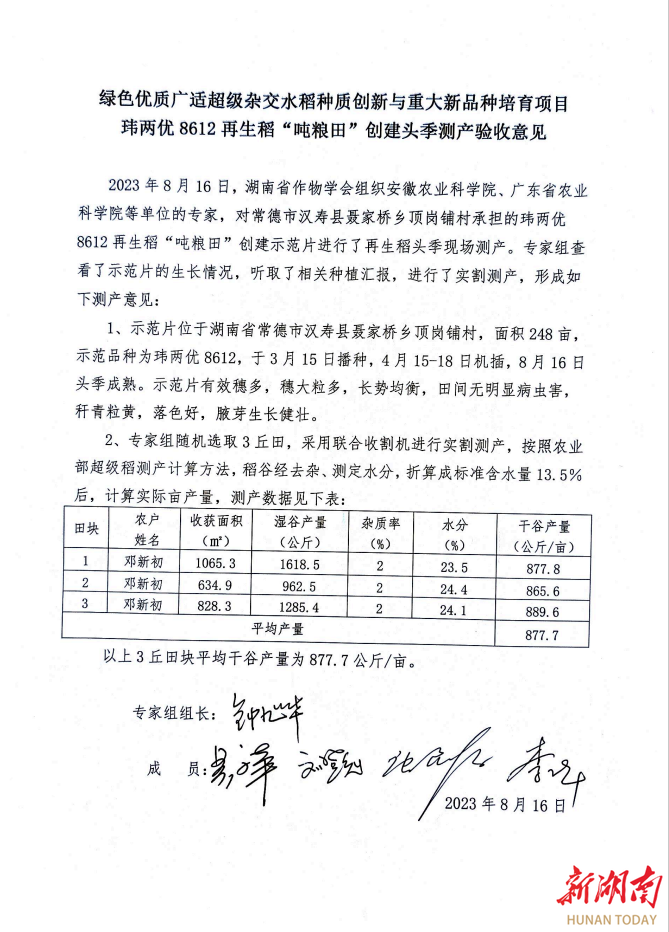 绿色优质广适超级杂交水稻种质创新与重大新品种培育项目
玮两优 8612 再生稻“吨粮田”创建头季测产验收意见
2023 年 8 月 16 日，湖南省作物学会组织安徽农业科学院、广东省农业
科学院等单位的专家，对常德市汉寿县聂家桥乡顶岗铺村承担的玮两优
8612 再生稻“吨粮田”创建示范片进行了再生稻头季现场测产。专家组查
看了示范片的生长情况，听取了相关种植汇报，进行了实割测产，形成如
下测产意见：
1、示范片位于湖南省常德市汉寿县聂家桥乡顶岗铺村，面积 248 亩，
示范品种为玮两优 8612，于 3 月 15 日播种，4 月 15-18 日机插，8 月 16 日
头季成熟。示范片有效穗多，穗大粒多，长势均衡，田间无明显病虫害，
秆青粒黄，落色好，腋芽生长健壮。
2、专家组随机选取 3 丘田，采用联合收割机进行实割测产，按照农业
部超级稻测产计算方法，稻谷经去杂、测定水分，折算成标准含水量 13.5%
后，计算实际亩产量，测产数据见下表：
田块 农户姓名 收获面积（㎡） 湿谷产量（公斤） 杂质率（%） 水分（%） 干谷产量（公斤/亩）
1 邓新初 1065.3 1618.5 2 23.5 877.8
2 邓新初 634.9 962.5 2 24.4 865.6
3 邓新初 828.3 1285.4 2 24.1 889.6
平均产量 877.7
以上 3 丘田块平均干谷产量为 877.7 公斤/亩。
专家组组长：
成 员：
2023 年 8 月 16 日
新湖南
HUNAN TODAY